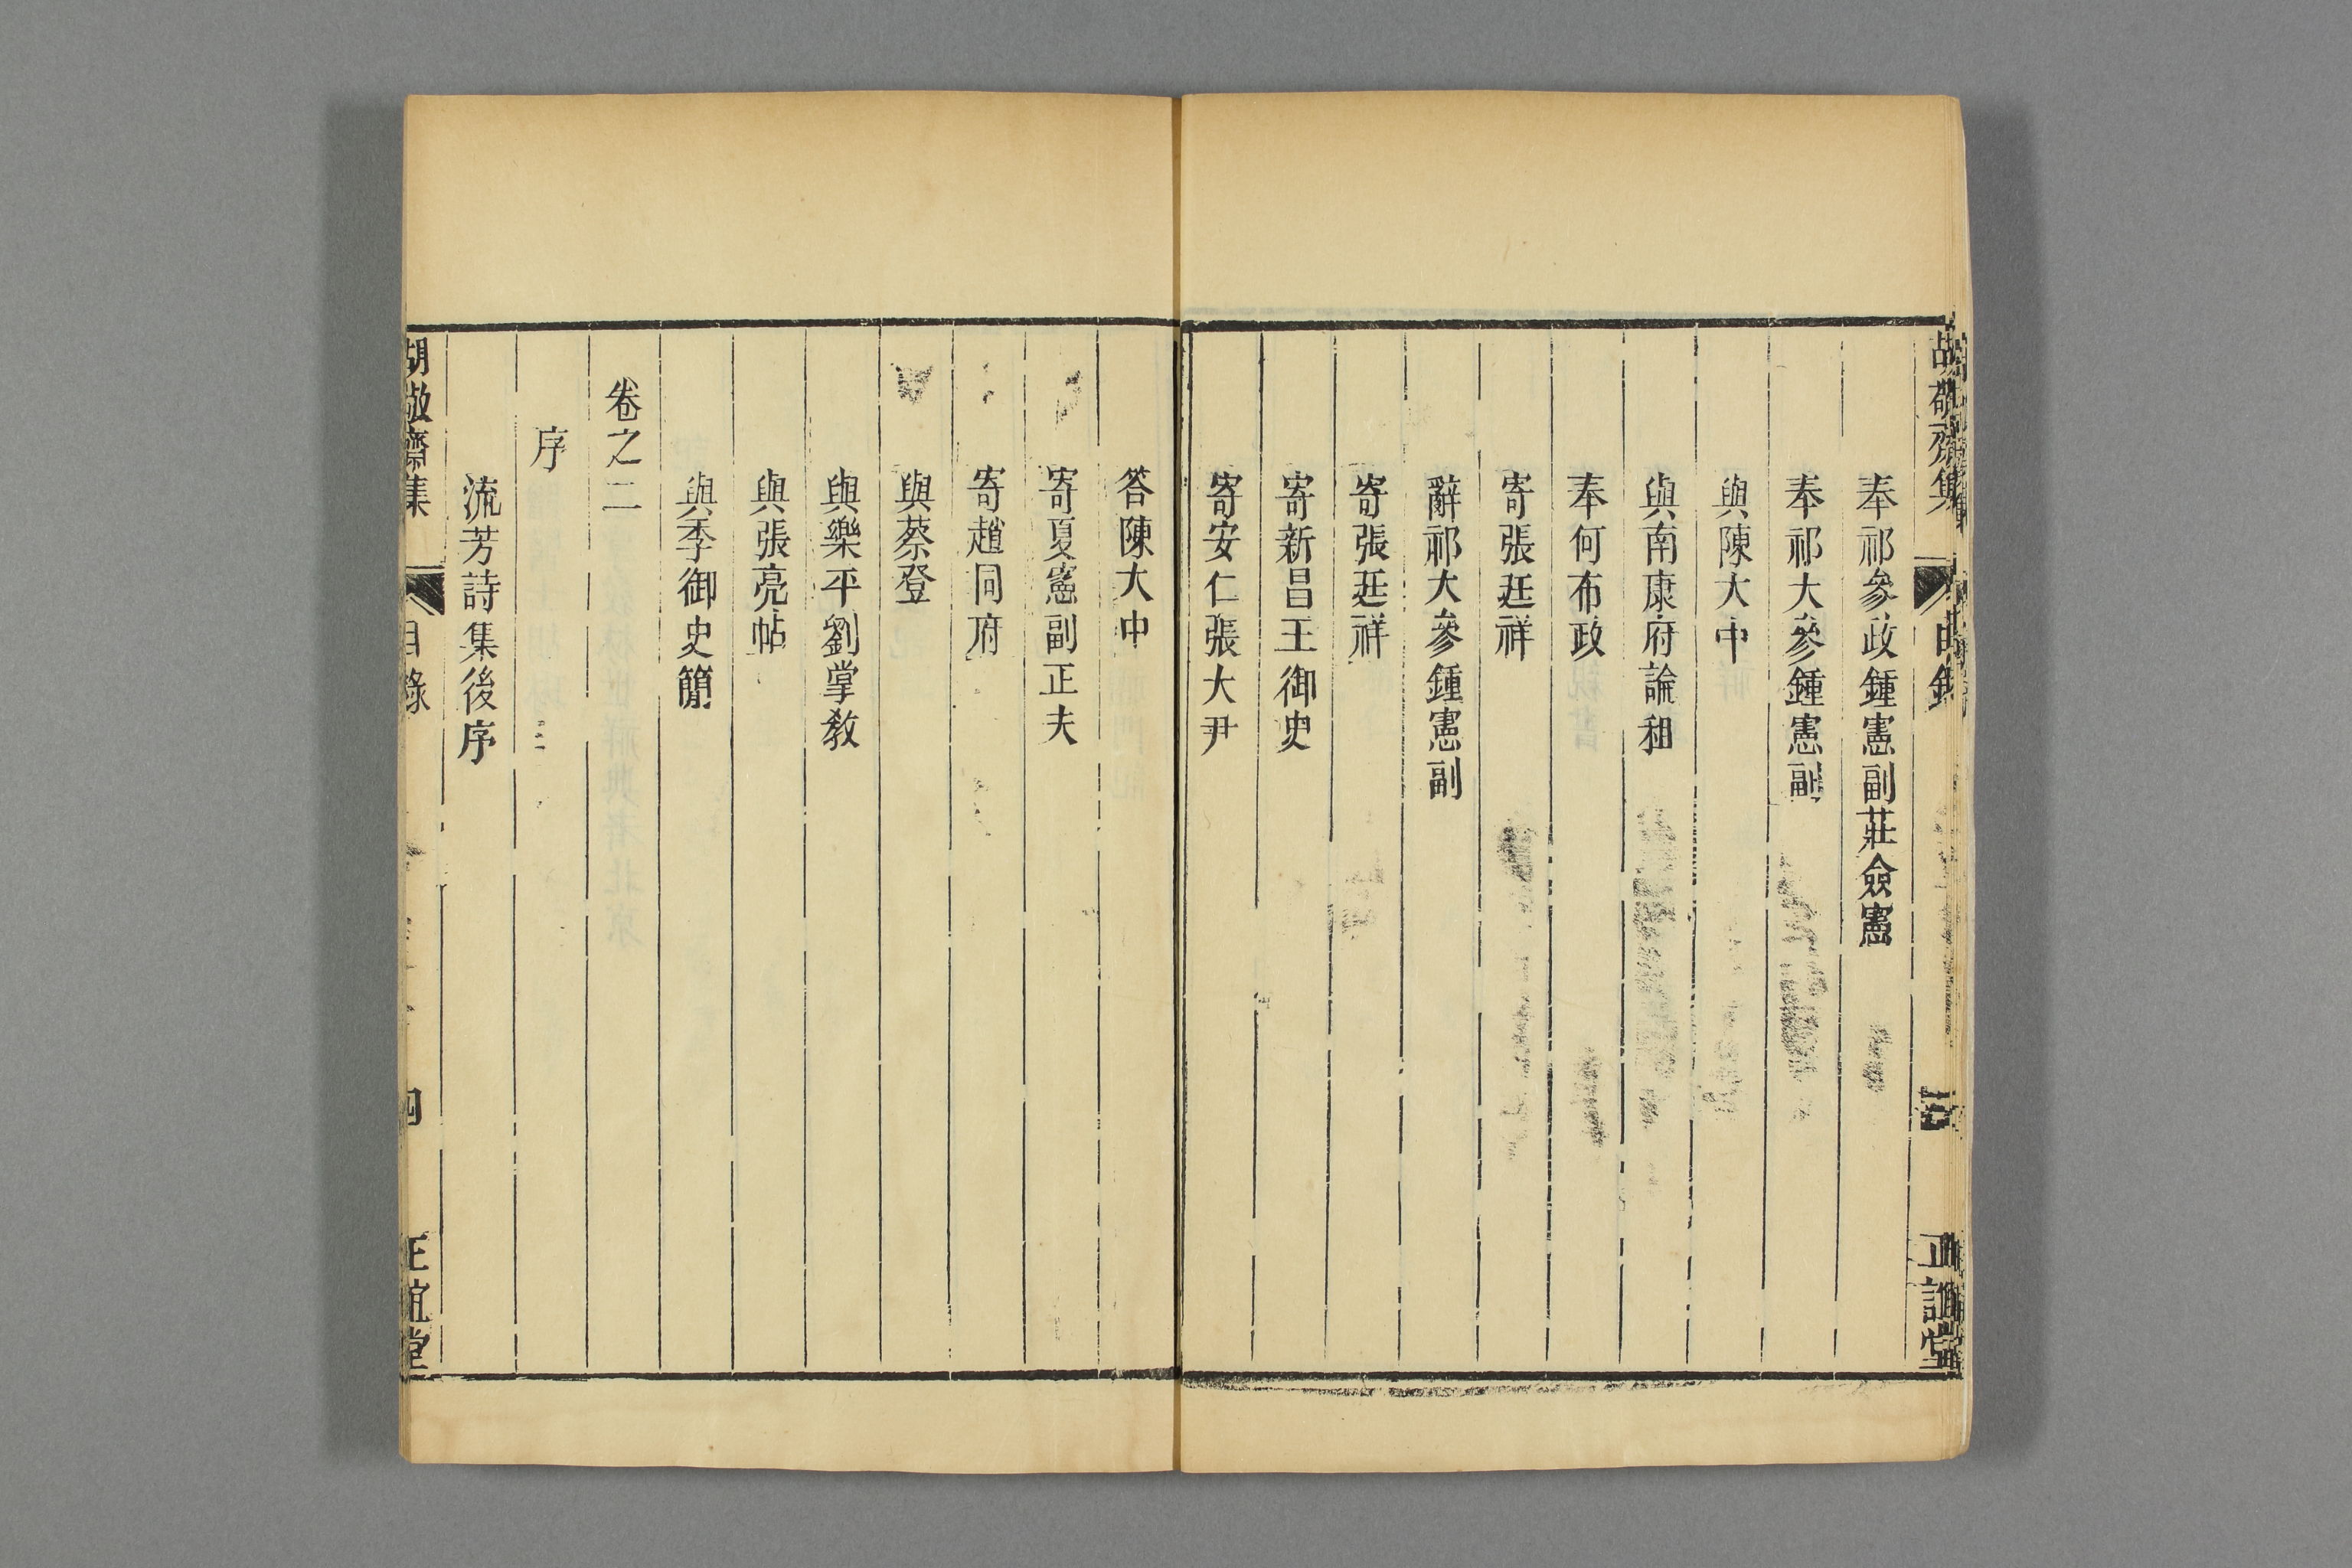 胡敬齋集
目錄
三
正誼堂
奉祁參政鍾憲副莊僉憲
奉祁大參鍾憲副
與陳大中
與南康府論租
奉何布政
寄張廷祥
辭祁大參鍾憲副
寄張廷祥
寄新昌王御史
寄安仁張大尹
答陳大中
寄夏憲副正夫
寄趙同府
與蔡登
與樂平劉掌教
與張亮帖
與季御史簡
卷之二
序
流芳詩集後序
胡敬齋集
目錄
四
正誼堂